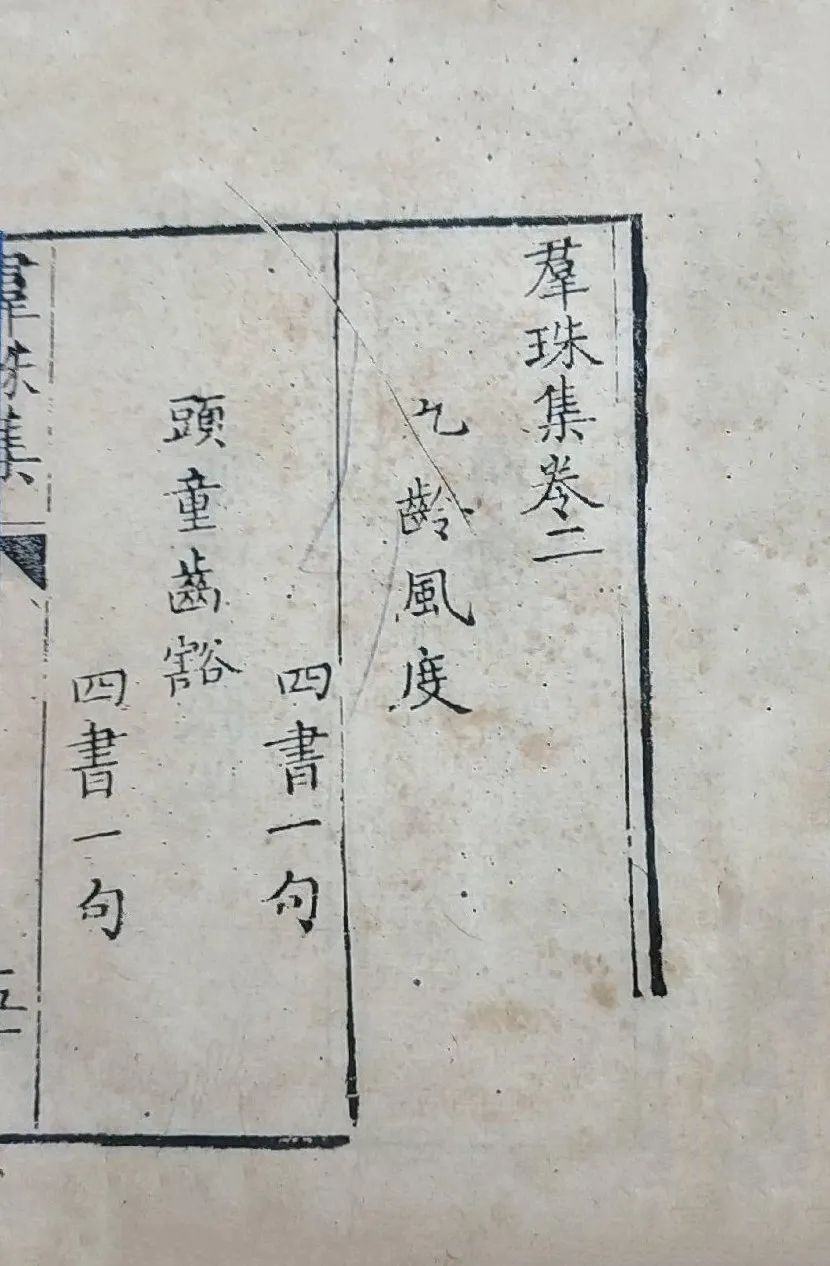 羣珠集卷二
九齡風度
四書一句
頭童齒豁
四書一句
羣珠集